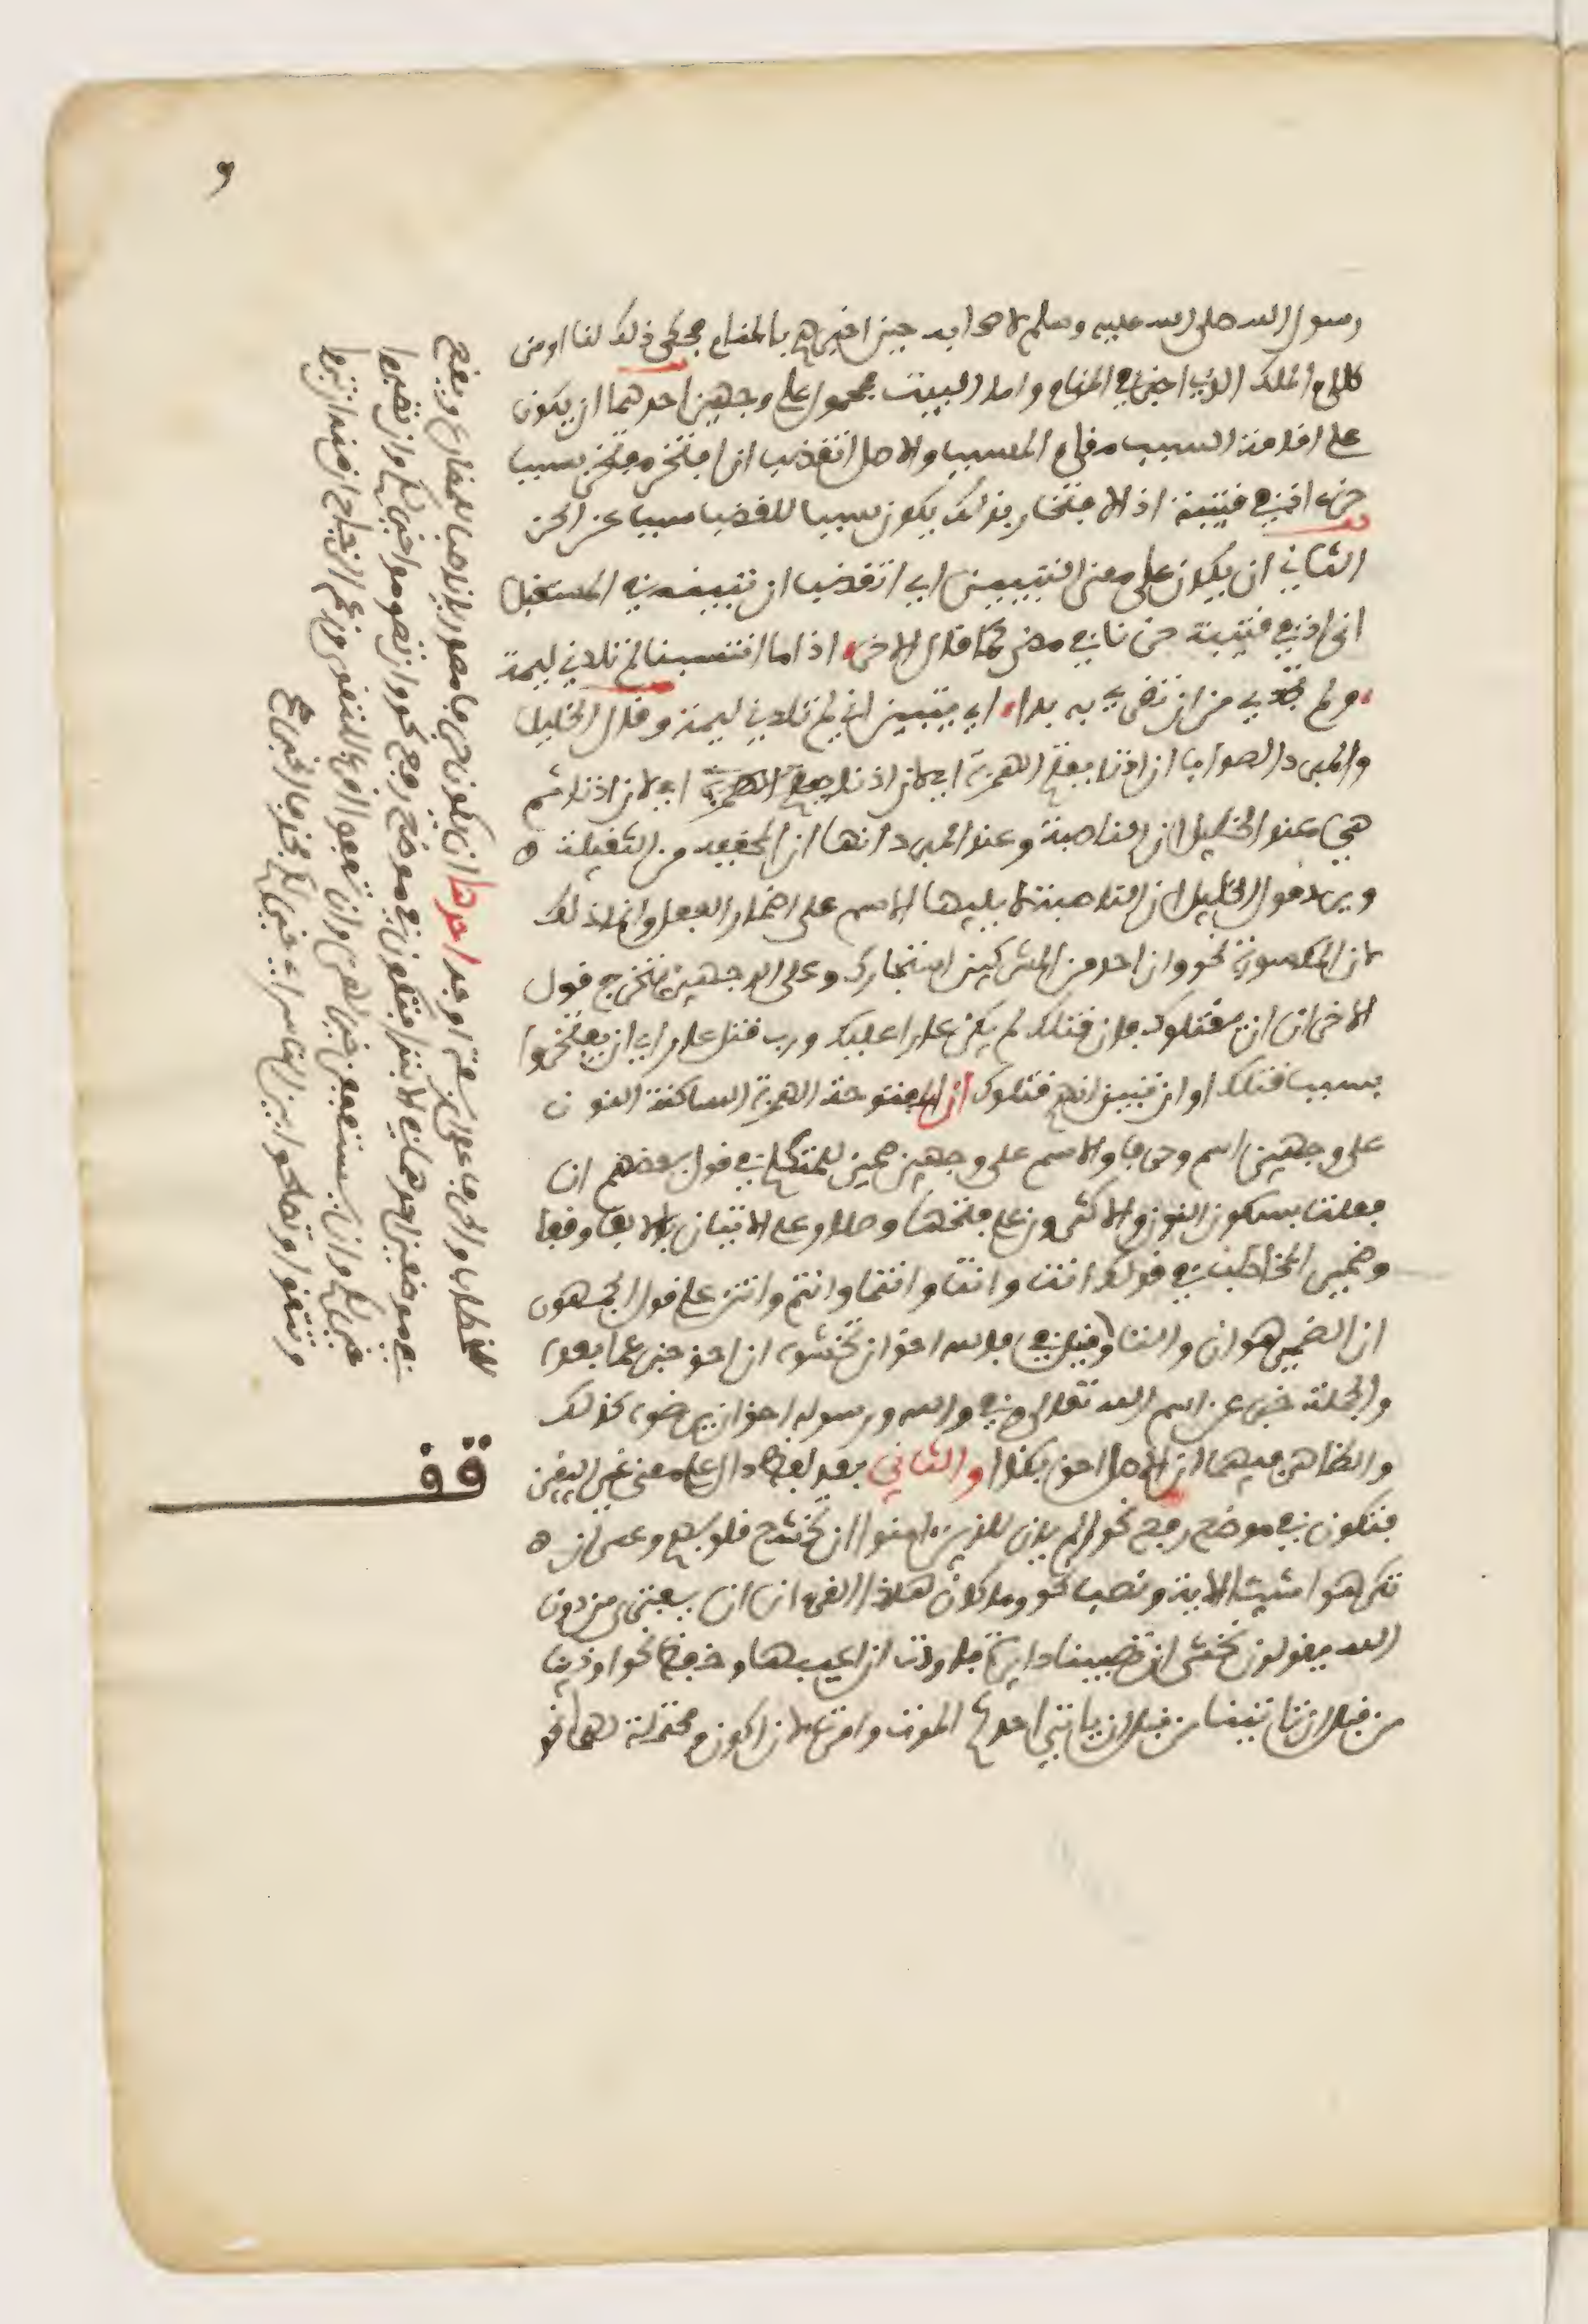 رسول الله صلى الله عليه وسلم لاصحابه حين اخبرهم بالمنام فحكى ذلك لنا او من
كلام الملك الذي اخبره في المنام واما البيت فمحمول على وجهين احدهما ان يكون
على اقامة السبب مقام المسبب والاصل اتغضب ان افتخر مفتخر بسبب
حز اذني قتيبة اذ الافتخار بذلك يكون سببا للغضب مسببا عن الحز
الثاني ان يكون على معنى التبيين اي اتغضب ان تبين في المستقبل
ان اذني قتيبة حزتا فيما مضى كما قال الاخر اذا ما انتسبنا لم تلدني ليمة
ولم تجدي من ان تقري به بدا اي يتبين اني لم تلدني ليمة وقال الخليل
والمبرد الصواب ان اذنا بفتح الهمزة اي لان اذنا ثم
هي عند الخليل ان الناصبة وعند المبرد انها ان المخففة من الثقيلة ه
ويرد قول الخليل ان الناصبة لا يليها الاسم على اضمار الفعل وانما ذلك
لان المكسورة نحو وان احد من المشركين استجارك وعلى الوجهين يتخرج قول
الاخر ان ان يقتلوك فان قتلك لم يكن عارا عليك ورب قتل عار اي ان يفتخروا
بسبب قتلك او ان تبين انهم قتلوك ان المفتوحة الهمزة الساكنة النون
على وجهين اسم وحرف والاسم على وجهين ضمير للمتكلم في قول بعضهم ان
فعلت بسكون النون والاكثرون على فتحها وصلا وعلى الاتيان بالالف وقفا
وضمير المخاطب في قولك انت وانت وانتما وانتم وانتن على قول الجمهور
ان الضمير هو ان والتا وقيل في فالله احق ان تخشوه ان احق خبر عما بعده
والجملة خبر عن اسم الله تعالى وفي والله ورسوله احق ان يرضوه كذلك
والظاهر فيهما ان الاصل احق بكذا والثاني بعد لفظ دال على معنى غير اليقين
فتكون في موضع رفع نحو الم يان للذين امنوا ان تخشع قلوبهم وعسى ان ه
تكرهوا شيئا الاية ونصب نحو وما كان هذا القران ان يفترى من دون
الله يقولون نخشى ان تصيبنا دايرة فاردت ان اعيبها وخفض نحو اوذينا
من قبل ان تاتينا من قبل ان ياتي احدكم الموت وامرت لان اكون ومحتملة لهما نحو
قف
الخطاب والحرف على اربعة اوجه احدها ان يكون حرفا مصدريا ناصبا للمضارع ويقع
في موضعين احدهما في الابتدا فتكون في موضع رفع نحو وان تصوموا خير لكم وان تصبروا
خير لكم وان يستعففن خير لهن وان تعفوا اقرب للتقوى وزعم الزجاج ان منه ان تبروا
وتتقوا وتصلحوا بين الناس اي خير لكم فحذف الخبر